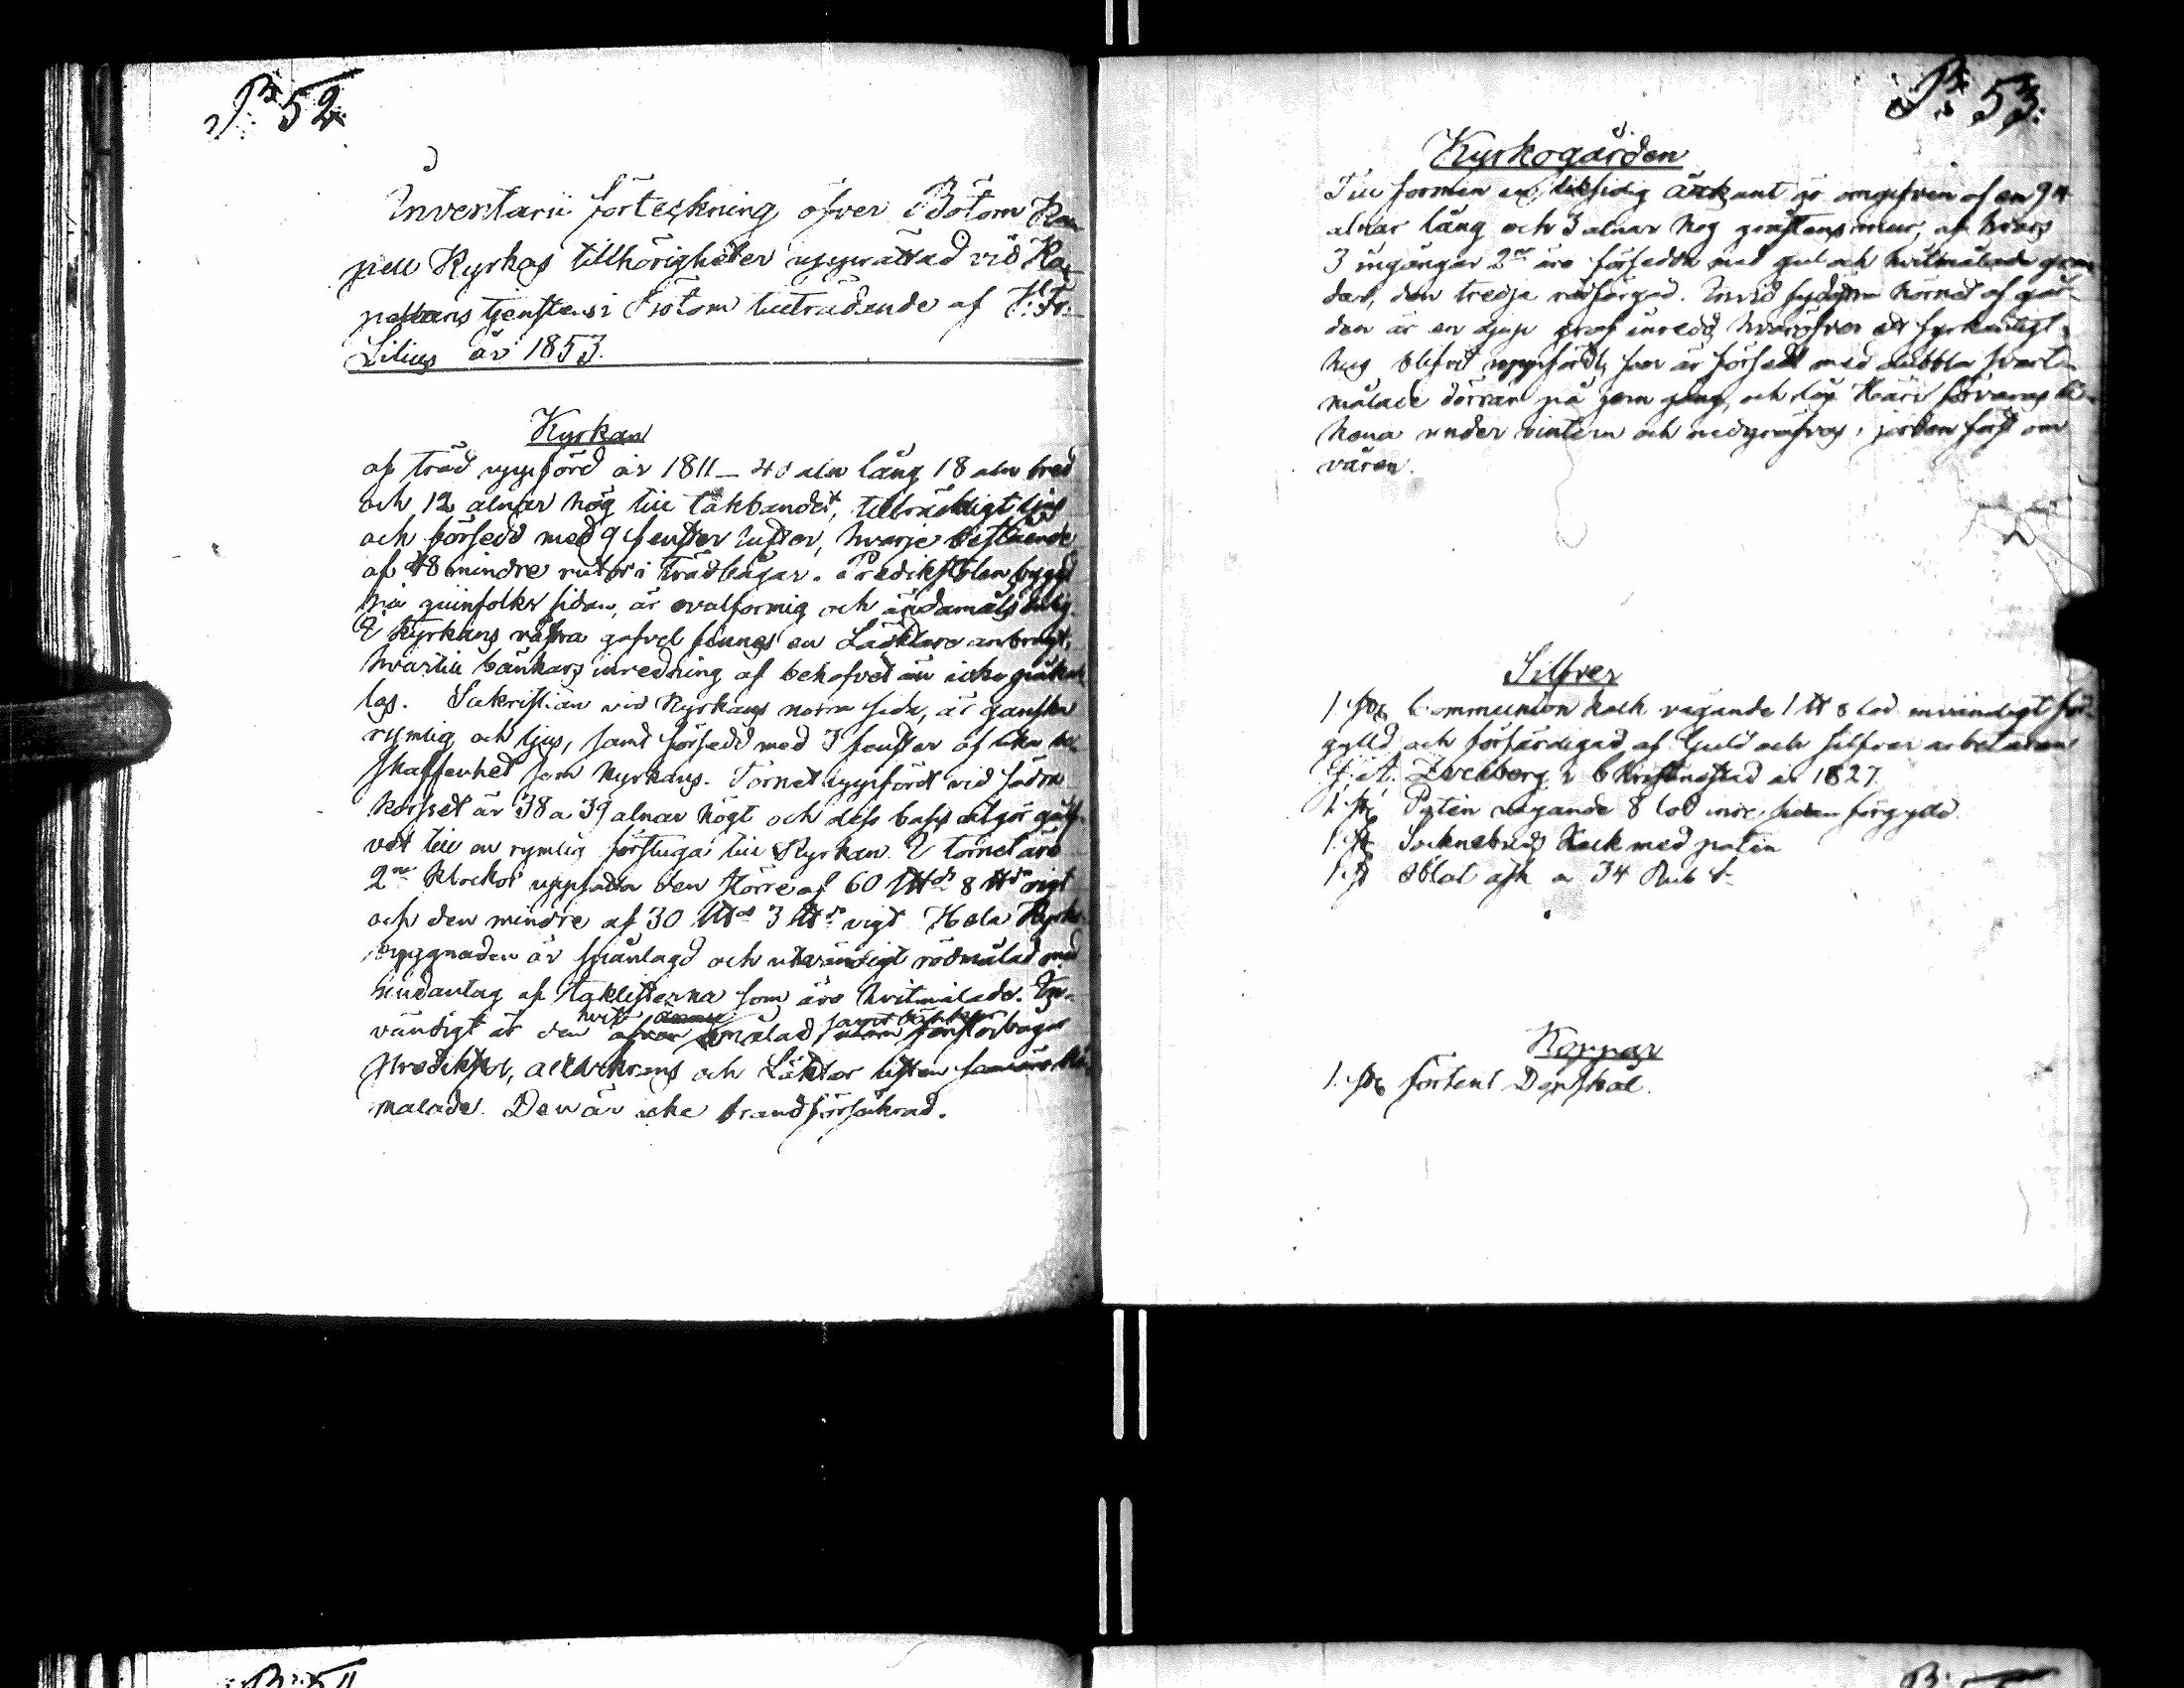 P: 52.
Inventarii förteckning öfver Bötom Ka-
pell Kyrkas tillhörigheter upprättad vid Ka-
pellans tjenstens i Bötom tillträdande af
Lilius år 1853.
Kyrkan
af träd uppförd år 1811 – 40 aln lång 18 aln bred
och 12 alnar hög till takbandet, tillräckligt ljus
och försedd med 9 fenster lufter, hvarje bestående
af 48 mindre rutor i trädbågar. Predikstolen byggd
på quinfolks sidan, är ovalformig och ändamålsenlig.
I Kyrkans västra gafvel finnes en Läcktare anbragt,
hvartill bänkars inredning af behofvet än icke påkal-
las. Sakristian vid Kyrkans norra sida, är ganska
rymlig och ljus, samt försedd med 3 fenster af lika be-
skaffenhet som Kyrkans. Tornet uppfördt vid södra
korset är 38 a 39 alnar högt och dess basis utgör golf-
vet till en rymlig förstuga till Kyrkan. I tornet äro
2ne klockor uppsatta den större af 60 L℔ds 8 ℔ds vigt
och den mindre af 30 L℔ds 3 ℔ds vigt. Hela Kyrko
byggnaden är spånlagd och utvändigt rödmålad med
undantag af taklisterna som äro hvitmålade. In-
hvit samt bänkar
vändigt är den målad fensterbågar
Predikstol, altarkrans och Läktar listen
målade. Den är icke brandförsäkrad.
P: 53.
Kyrkogården
Till formen en liksidig är omgifven af en 94
alnar lång och 3 alnar hög gråstens mur, af hvars
3 ingångar 2ne äro försedda med gul och hvitmålade grin-
dar, den tredje rödfärgad. Invid hörnet af går-
den är en djup graf inredd, hvaröfver ett fyrkantigt
hus blifvit uppfördt, som är försedt med dubbla svart-
målade dörrar på jern gång, och lås. Häri förvaras li-
kena under vintern och nedgräfvas i jorden först om
våren.
Silfver
1. st. Communion kalk vägande 1 ℔ 8 lod invändigt för-
gylld och förfärdigad af Guld och silfver arbetaren
i Christinestad år 1827.
1. st. Patén vägande 8 lod inre sidan förgylld.
1. st. Sockenbuds Kalk med patén
1. st. Oblat ask a 34 Rub S.
Koppar
1. st. förtent Dopskål.